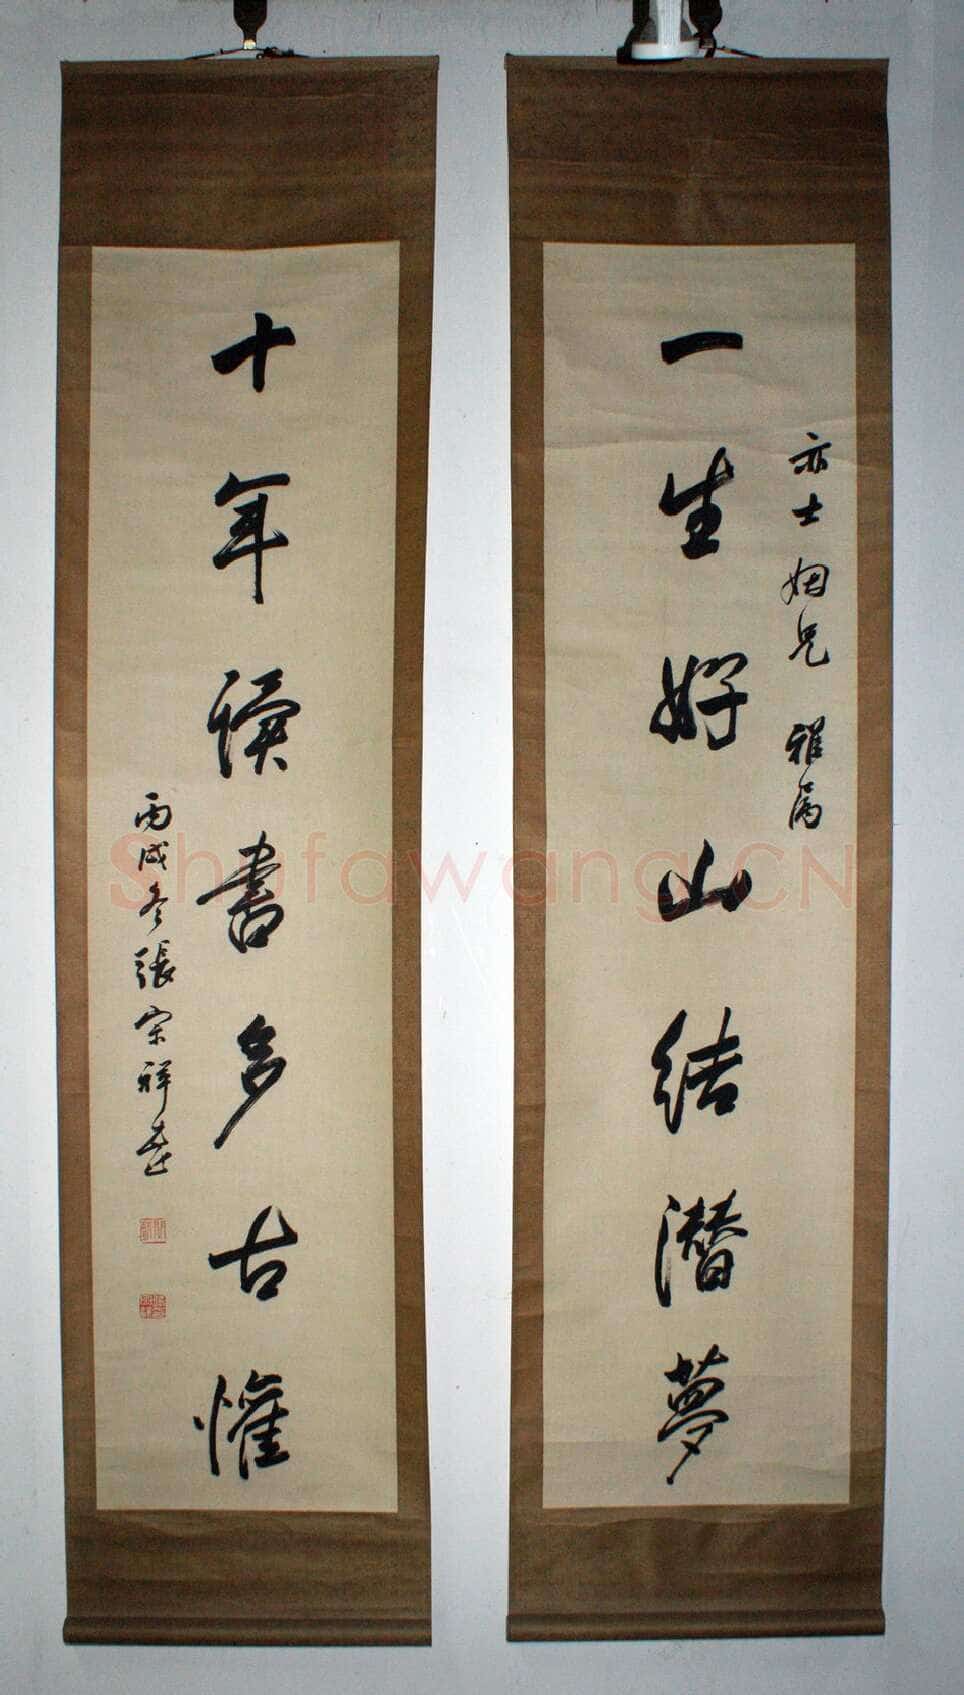 亦士姻兄 雅属
一生好山结潜夢
十年读書多古懽
丙戌冬張宗祥書
Shufawang.CN